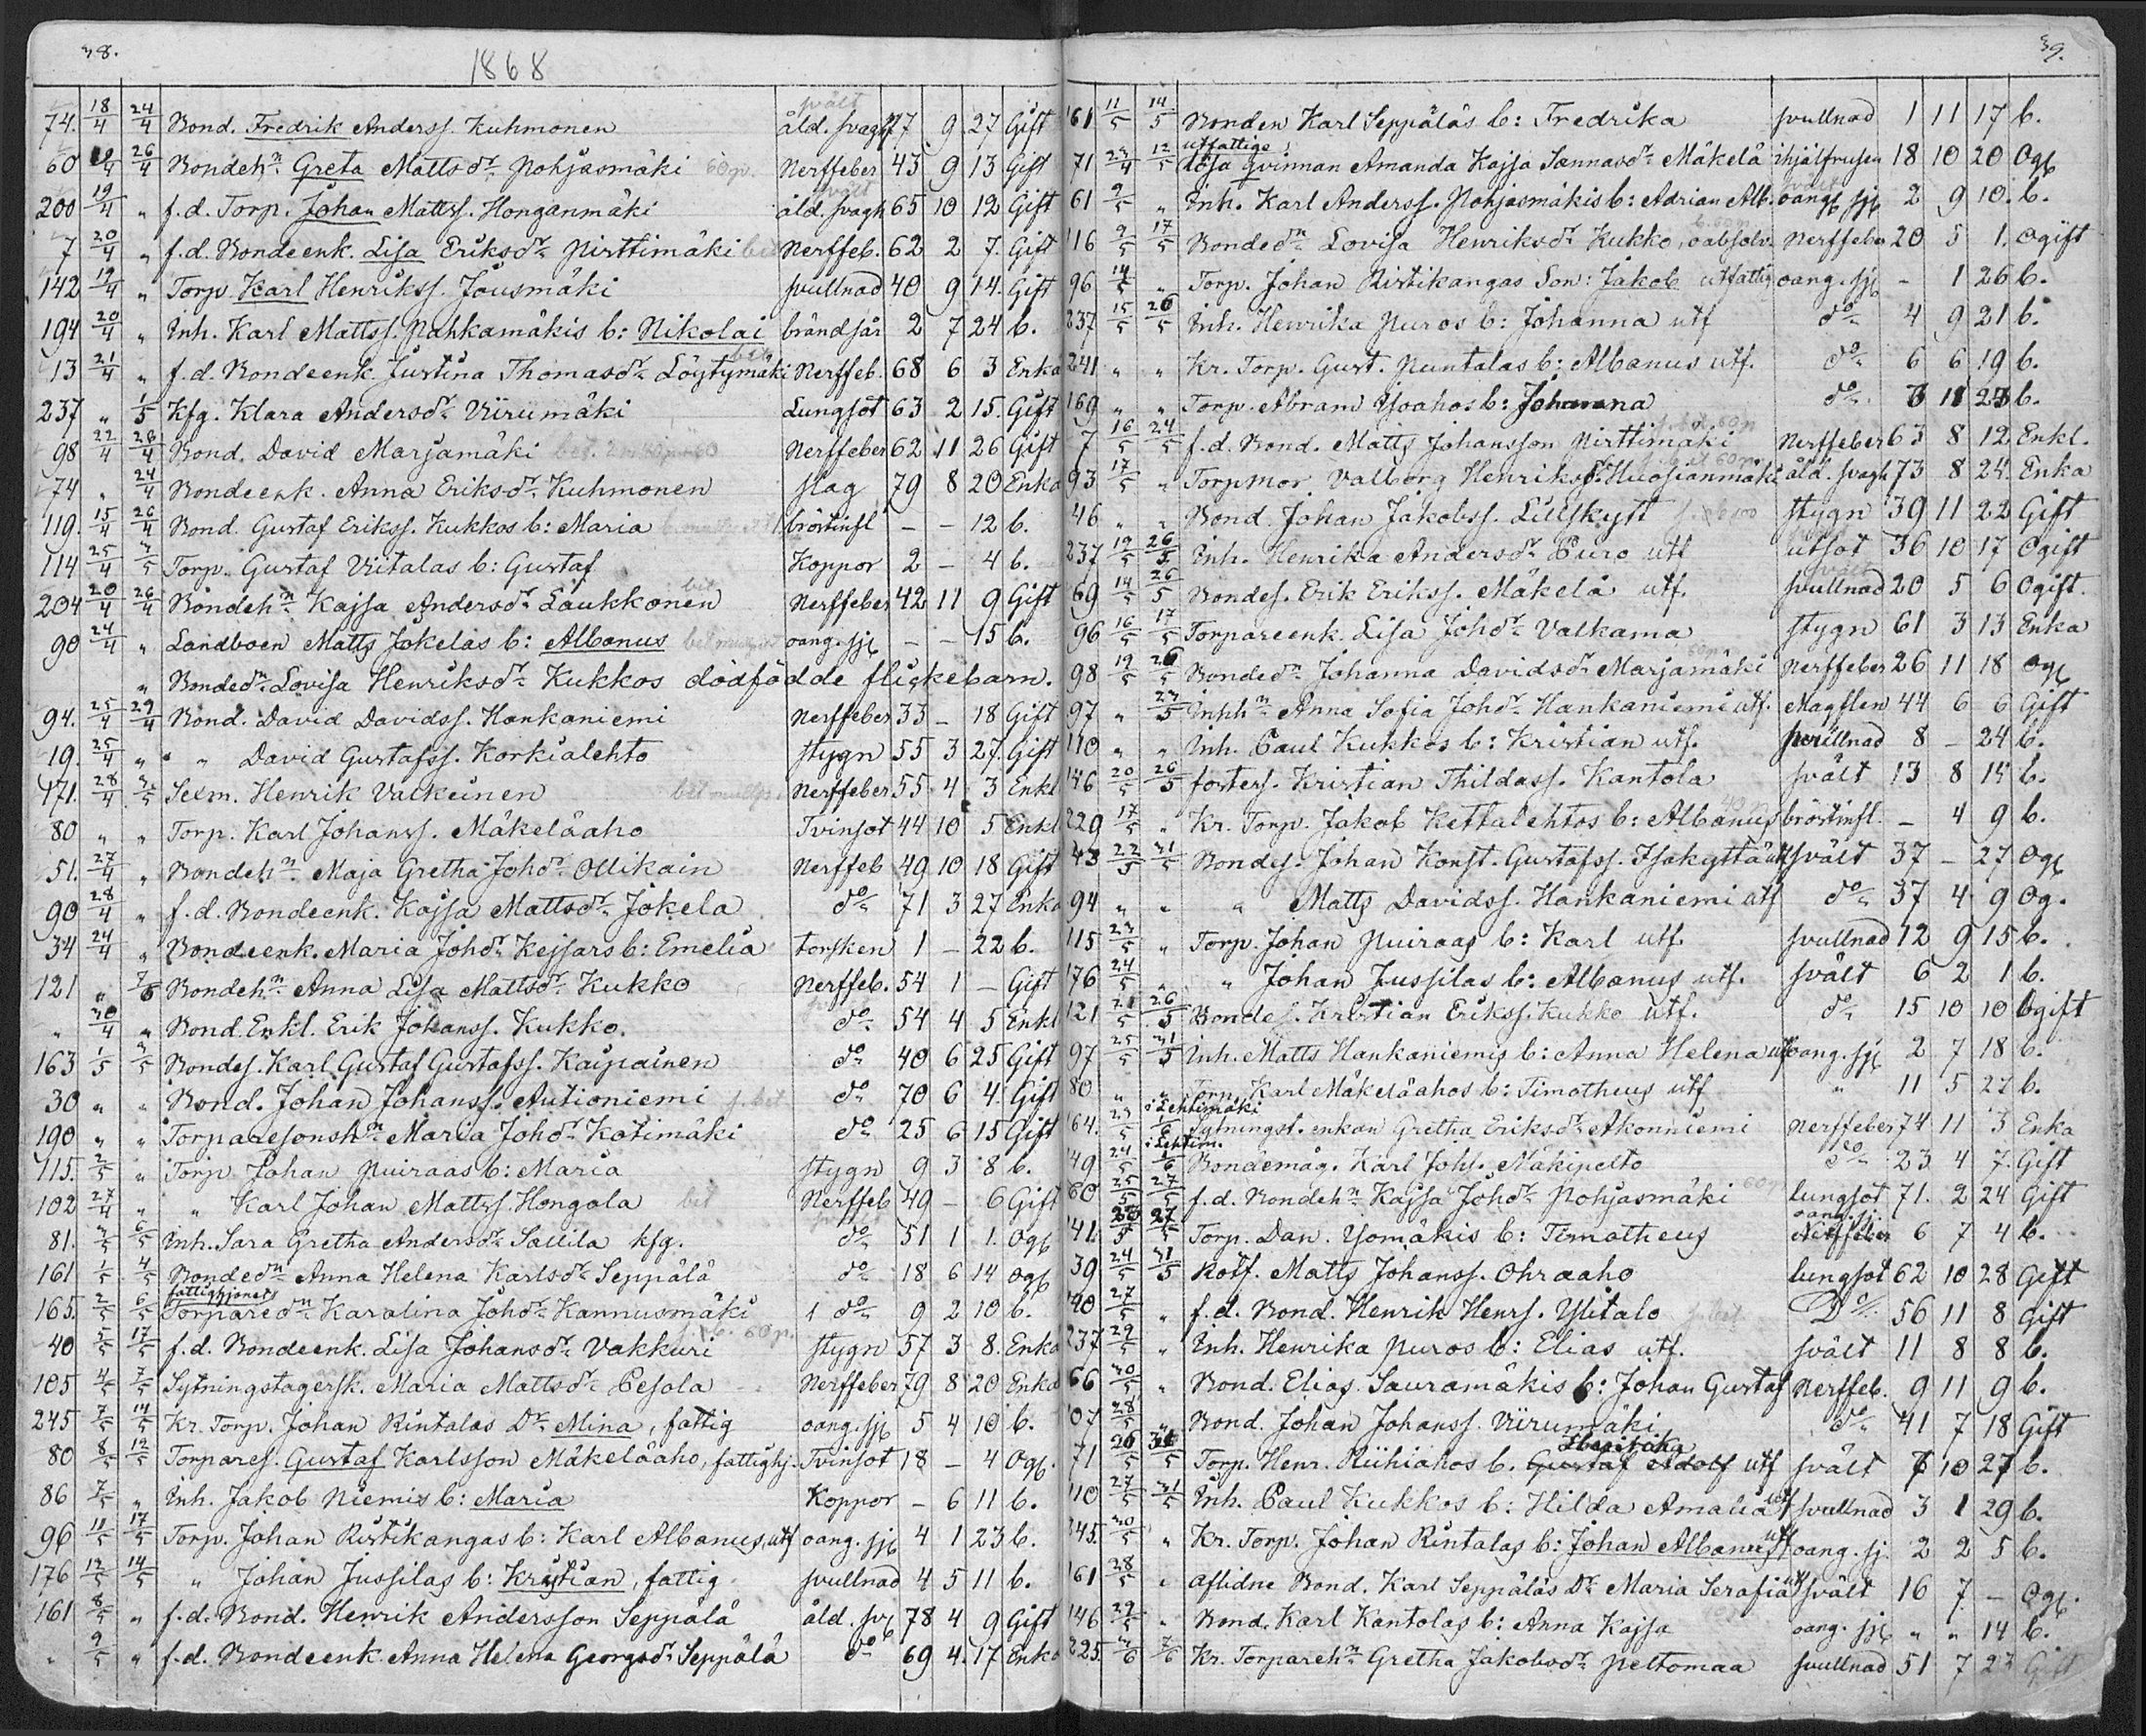 38.
1868
74. 18/4 24/4 Bond. Fredrik Anderss. Kuhmonen åld. svagh 77 9 27 Gift
60 19/4 26/4 Bondehn Greta Mattsdr Pohjasmäki 60 p. Nerffeber 43 9 13 Gift
200 19/4 " f.d. Torp. Johan Mattss. Honganmäki åld. svagh 65 10 12 Gift
7 20/4 " f.d. Bondeenk. Lisa Eriksdr Pirttimäki bet Nerffeb. 62 2 7. Gift
142 19/4 " Torp. Karl Henrikss. Jousmäki svullnad 40 9 14. Gift
194 20/4 " Inh. Karl Mattss. Pahkamäkis b: Nikolai brändsår 2 7 24 b.
13 21/4 " f.d. Bondeenk. Justina Thomasdr Löytymäki Nerffeb. 68 6 3 Enka
237 " 1/5 Kfg. Klara Andersdr Viirumäki Lungsot 63 2 15. Gift
98 22/4 28/4 Bond. David Marjamäki Nerffeber 62 11 26 Gift
74 " 24/4 Bondeenk. Anna Eriksdr Kuhmonen slag 79 8 20 Enka
119. 15/4 26/4 Bond. Gustaf Erikss. Kukkos b: Maria bröstinfl - - 12 b.
114 25/4 3/5 Torp. Gustaf Viitalas b: Gustaf Koppor 2 - 4 b.
204 20/4 26/4 Bondehn Kajsa Andersdr Laukkonen bet Nerffeber 42 11 9 Gift
90 24/4 " Landboen Matts Jokelas b: Albanus oang. sj - - 15 b.
" Bondedn Lovisa Henriksdr Kukkos dödfödde flickebarn.
94. 25/4 29/4 Bond. David Davidss. Hankaniemi Nerffeber 33 - 18 Gift
19. 25/4 " " " David Gustafss. Korkialehto stygn 55 3 27. Gift
171. 28/4 3/5 Sexm. Henrik Valkeinen Nerffeber 55 4 3 Enkl
80 " " Torp. Karl Johanss. Mäkeläaho Tvinsot 44 10 5 Enkl
51. 27/4 " Bondehn Maja Gretha Johdr Ollikain Nerffeb 49 10 18 Gift
90 28/4 " f.d. Bondeenk. Kajsa Mattsdr Jokela do 71 3 27 Enka
34 24/4 " Bondeenk. Maria Johdr Kejsars b: Emelia torsken 1 - 22 b.
121 " 7/5 Bondehn Anna Lisa Mattsdr Kukko Nerffeb. 54 1 - Gift
" 30/4 " Bond. Enkl. Erik Johanss. Kukko. do 54 4 5 Enkl
163 1/5 3/5 Bondes. Karl Gustaf Gustafss. Kaipainen do 40 6 25 Gift
30 " " Bond. Johan Johanss. Autioniemi f. bet do 70 6 4. Gift
190 " " Torparesonshn Maria Johdr Kotimäki do 25 6 15 Gift
115. 2/5 " Torp. Johan Puiraas b: Maria stygn 9 3 8 b.
102 27/4 " " Karl Johan Mattss. Hongola bet Nerffeb 49 - 6 Gift
81. 3/5 6/5 Inh. Sara Gretha Andersdr Sallila kfg. do 51 1 1. Og
161 1/5 4/5 Bondedn Anna Helena Karlsdr Seppälä do 18 6 14 Og
165. 2/5 6/5 fattighjonets Torparedn Karalina Johdr Kannusmäki do 9 2 10 b.
40 3/5 17/5 f.d. Bondeenk. Lisa Johansdr Vakkuri 60 p. stygn 57 3 8. Enka
105 4/5 7/5 Sytningstagersk. Maria Mattsdr Pesola Nerffeber 79 8 20 Enka
245 7/5 14/5 Kr. Torp. Johan Rintalas Dr Mina, fattig oang. sj 5 4 10 b.
80 8/5 12/5 Torpares. Gustaf Karlsson Mäkeläaho, fattighj. Tvinsot 18 - 4 Og.
86 7/5 " Inh. Jakob Niemis b: Maria Koppor - 6 11 b.
96 11/5 17/5 Torp. Johan Ristikangas b: Karl Albanus, utf oang. sj 4 1 23 b.
176 12/5 14/5 " Johan Jussilas b: Kristian, fattig svullnad 4 5 11 b.
161 8/5 " f.d. Bond. Henrik Andersson Seppälä åld. sv 78 4 9 Gift
" 9/5 " f.d. Bondeenk. Anna Helena Georgsdr Seppälä do 69 4. 17 Enka
39.
161 11/5 14/5 Bonden Karl Seppäläs b: Fredrika svullnad 1 11 17 b.
71 23/4 12/5 utfattige lösa qvinnan Amanda Kajsa Sannasdr Mäkelä ihjälfrusen 18 10 20 Og
61 9/5 " Inh. Karl Anderss. Pohjasmäkis b: Adrian Alb. oang sj 2 9 10. b.
116 9/5 17/5 Bondedn Lovisa Henriksdr Kukko, oabsolv. Nerffeber 20 5 1. Ogift
96 14/5 " Torp. Johan Ristikangas Son: Jakob utfattig oang. sj - 1 26 b.
237 15/5 26/5 Inh. Henrika Puros b: Johanna utf do 4 9 21 b.
241 " " Kr. Torp. Gust. Puntalas b: Albanus utf. do 6 6 19 b.
169 " " Torp. Abram Ypahos b: Johanna do 11 b.
7 16/5 24/5 f.d. Bond. Matts Johansson Pirttimäki Nerffeber 63 8 12 Enkl.
93 17/5 " Torpmor Valborg Henriksdr Huosianmäki åld. svagh 73 8 24. Enka
46 " " Bond. Johan Jakobss. Lillskytt stygn 39 11 22 Gift
237 19/5 26/5 Inh. Henrika Andersdr Puro utf utsot 36 10 17 Ogift
69 14/5 26/5 Bondes. Erik Erikss. Mäkelä utf. svullnad 20 5 6 Ogift.
96 16/5 17/5 Torpareenk. Lisa Johdr Valkama stygn 61 3 13 Enka
98 19/5 26/5 Bondedn Johanna Davidsdr Marjamäki Nerffeber 26 11 18 Og
97 " 23/5 Inhhn Anna Sofia Johdr Hankaniemi utf. Magflen 44 6 6 Gift
110 " " Inh. Paul Kukkos b: Kristian utf. svullnad 8 - 24 b.
146 20/5 26/5 fosters. Kristian Thildass. Kantola svält 13 8 15 b.
229 17/5 " Kr. Torp. Jakob Kettalehtos b: Albanus bröstinfl. - 4 9 b.
43 22/5 31/5 Bondes. Johan Konst. Gustafss. Isakyttä utf svält 37 - 27 Og
94 " " " Matts Davidss. Hankaniemi utf do 37 4 9 Og.
115 23/5 " Torp. Johan Puiraas b: Karl utf. svullnad 12 9 15 b.
176 24/5 " " Johan Jussilas b: Albanus utf. svält 6 2 1 b.
121 21/5 26/5 Bondes. Kristian Erikss. Kukko utf. do 15 10 10 Ogift
97 25/5 31/5 Inh. Matts Hankaniemis b: Anna Helena utf oang. sj 2 7 18 b.
80 " " Torp. Karl Mäkeläahos b: Timotheus utf " 11 5 27 b.
64. 23/5 i Lehtimäki 1/6 Sytningst. enkan Gretha Eriksdr Akonniemi Nerffeber 74 11 3 Enka
49 24/5 i Lehtim. 1/6 Bondemåg. Karl Johs. Mäkipelto do 23 4 7. Gift
60 25/5 27/5 f.d. Bondehn Kajsa Johdr Pohjasmäki 60 p lungsot 71. 2 24 Gift
41. 27/5 Torp. Dan. Yomäkis b: Timotheus oang. sj. Nerffeber 6 7 4 b.
39 24/5 31/5 Rotf. Matts Johanss. Ohraaho lungsot 62 10 28 Gift
90 27/5 " f.d. Bond. Henrik Henrs. Ylitalo Do 56 11 8 Gift
237 29/5 " Inh. Henrika Puros b: Elias utf. svält 11 8 8 b.
66 30/5 " Bond. Elias Sauramäkis b: Johan Gustaf Nerffeb. 9 11 9 b.
107 28/5 " Bond. Johan Johanss. Viirumäki do 41 7 18 Gift
71 26/5 31/5 Torp. Henr. Riihiahos b. Gustaf Adolf utf svält 7 10 27 b.
110 27/5 31/5 Inh. Paul Kukkos b: Hilda Amalia utf svullnad 3 1 29 b.
245. 30/5 " Kr. Torp. Johan Rintalas b: Johan Albanus utf oang. sj. 2 2 5 b.
161 28/5 " aflidne Bond. Karl Seppäläs Dr Maria Serafia utf svält 16 7 - Og.
146 29/5 " Bond. Karl Kantolas b: Anna Kajsa oang. sj " " 14 b.
225. 3/6 7/6 Kr. Torparehn Gretha Jakobsdr Peltomaa svullnad 51 7 23 Gift